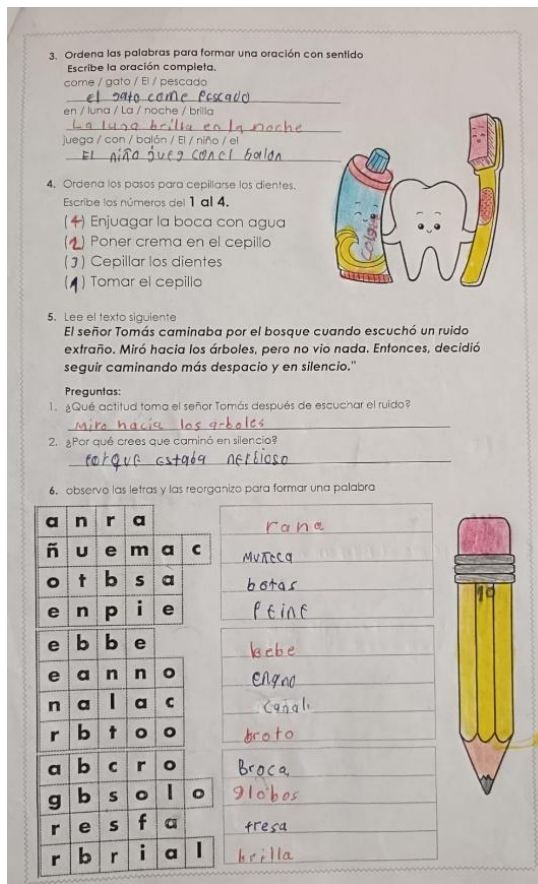 3. Ordena las palabras para formar una oración con sentido
Escribe la oración completa.
come / gato / El / pescado
el gato come Pescado
en / luna / La / noche / brilla
La luna brilla en la noche
juega / con / balón / El / niño / el
El niño jueg con el balon
4. Ordena los pasos para cepillarse los dientes.
Escribe los números del 1 al 4.
(4) Enjuagar la boca con agua
(2) Poner crema en el cepillo
(3) Cepillar los dientes
(1) Tomar el cepillo
Colga
5. Lee el texto siguiente
El señor Tomás caminaba por el bosque cuando escuchó un ruido
extraño. Miró hacia los árboles, pero no vio nada. Entonces, decidió
seguir caminando más despacio y en silencio."
Preguntas:
1. ¿Qué actitud toma el señor Tomás después de escuchar el ruido?
Miro hacia los arboles
2. ¿Por qué crees que caminó en silencio?
Porque estaba nerbioso
6. observo las letras y las reorganizo para formar una palabra
a n r a rana
ñ u e m a c Muñeca
o t b s a botas
e n p i e Peine
e b b e bebe
e a n n o enano
n a l a c canal
r b t o o broto
a b c r o Broca
g b s o l o globos
r e s f a fresa
r b r i a l brilla
10